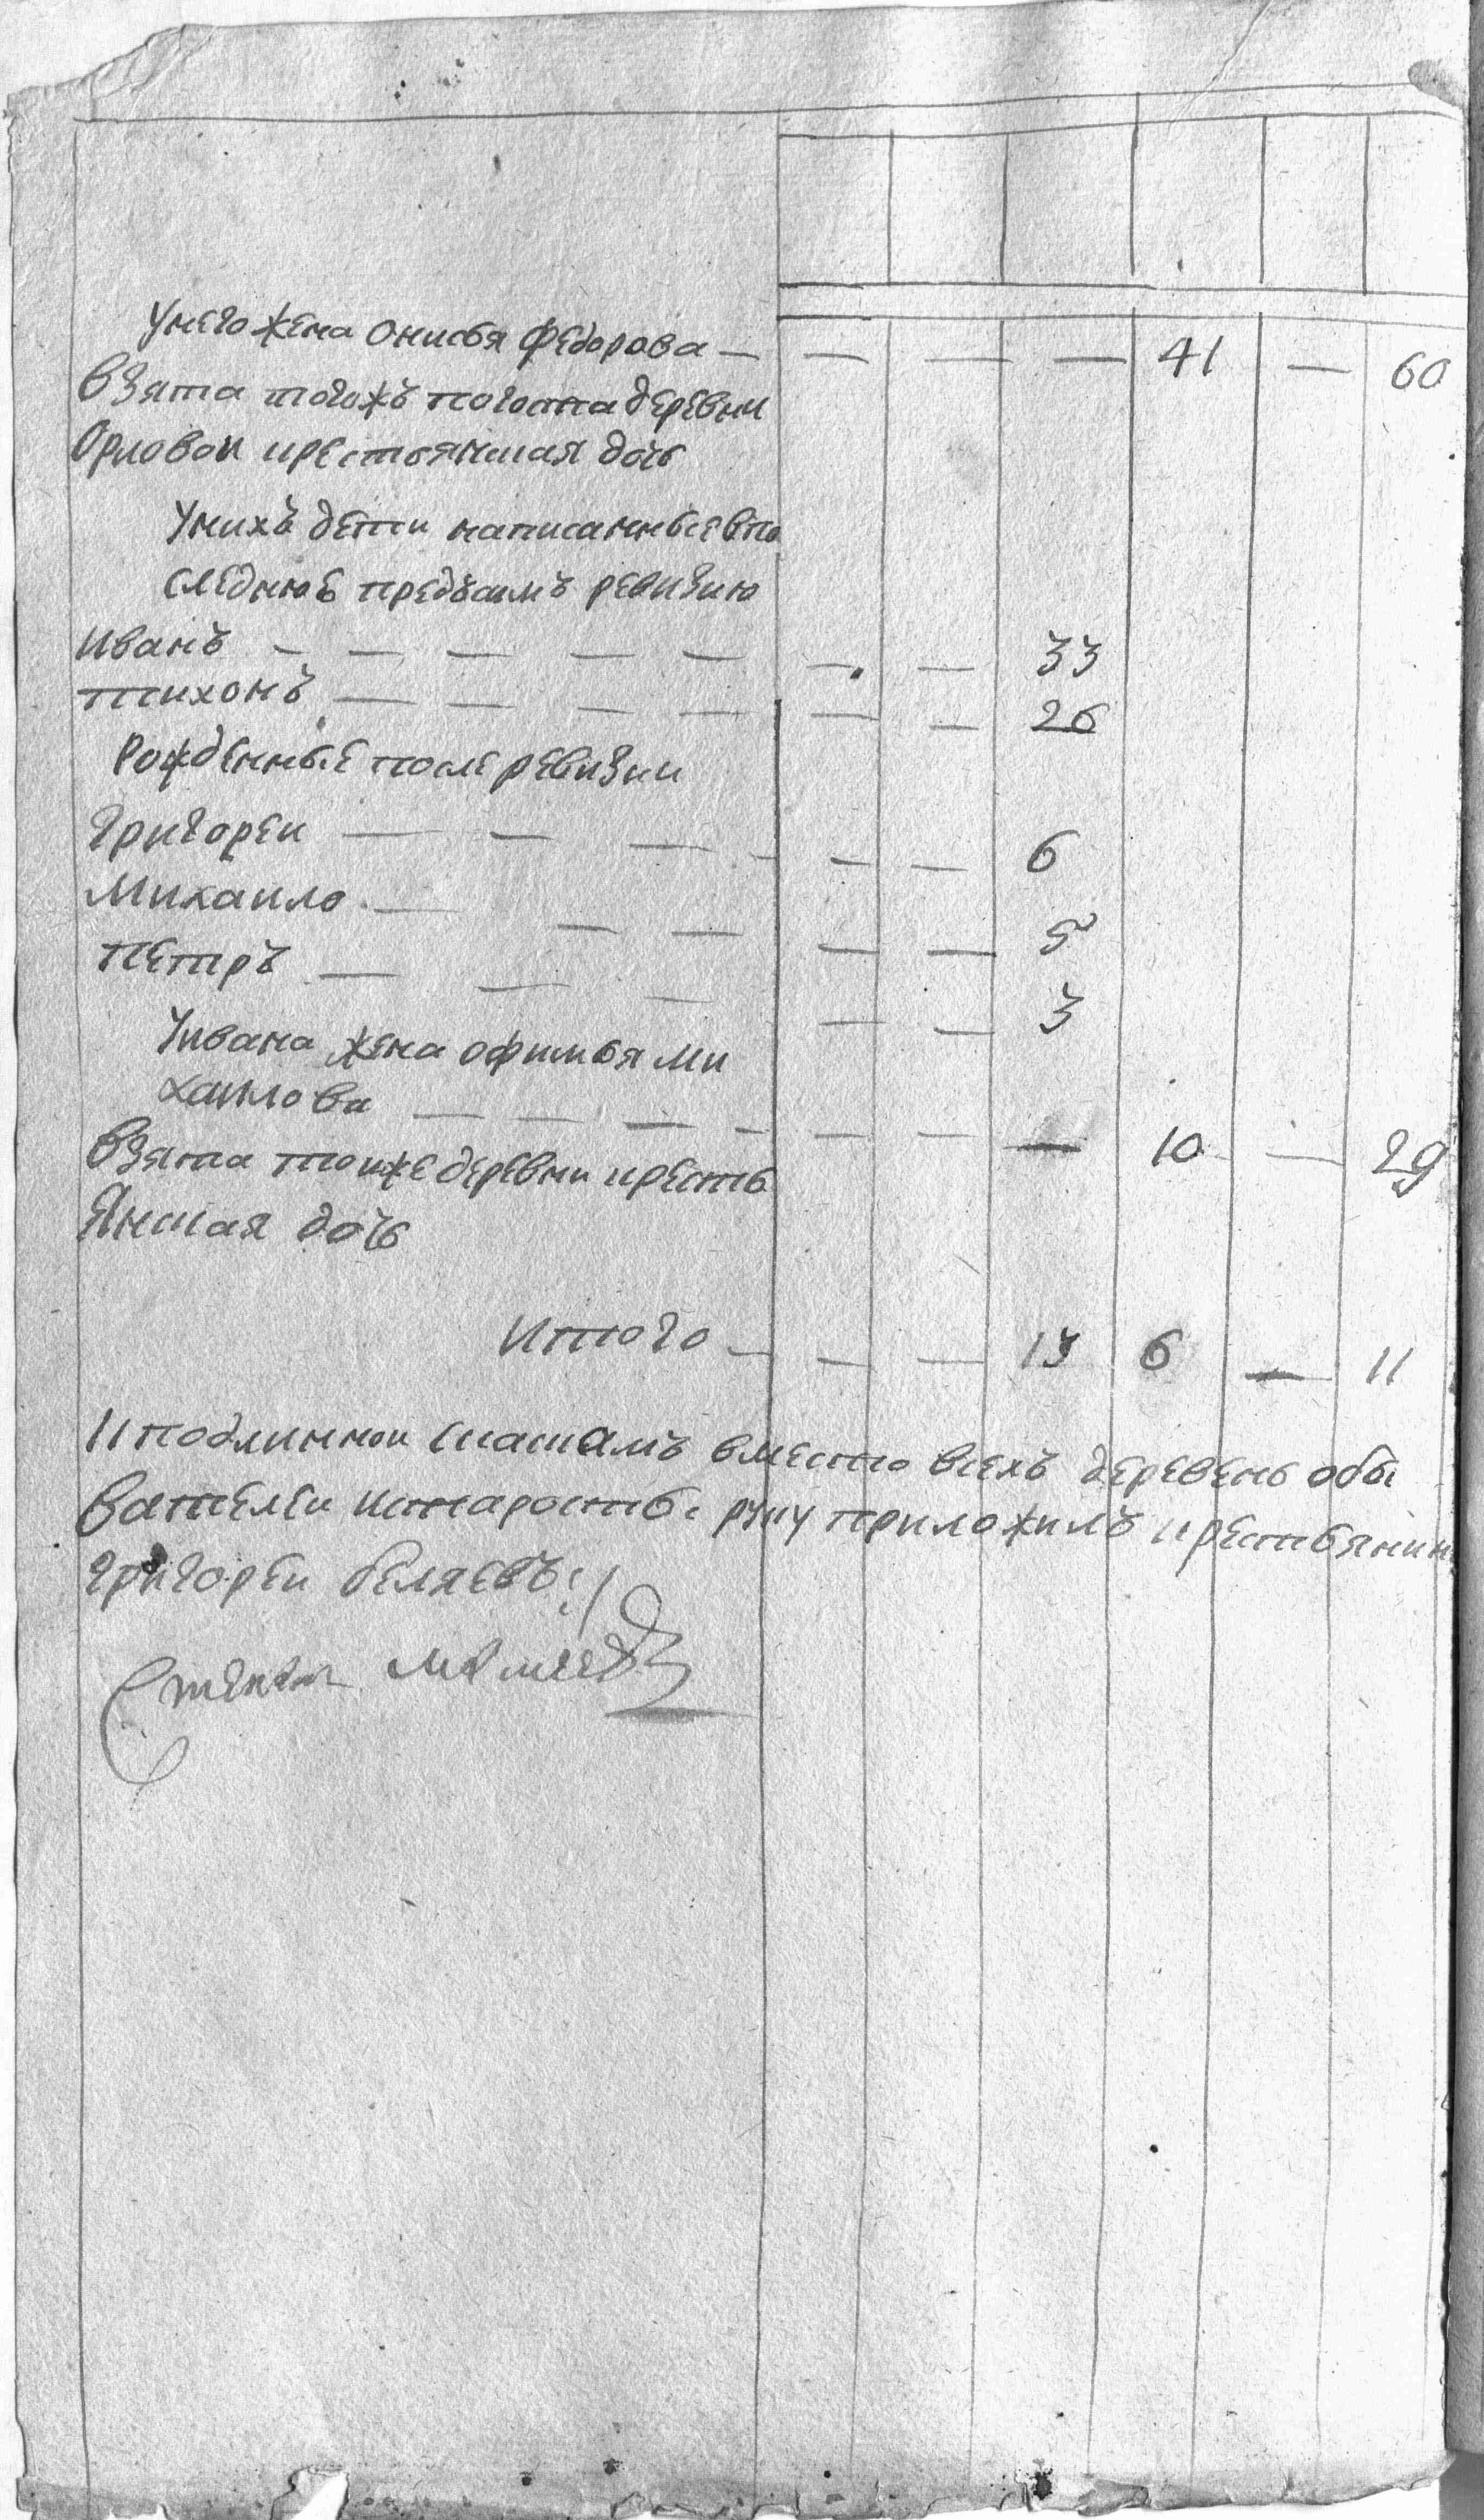 Унего жена онисья федорова — — — — 41 — 60
взята тогожъ погоста деревни
Орловои крестьянская дочь
Унихъ дети написанные впо
следнюю предъсимъ ревизию
Иванъ — — — — — — — 33
тихонъ — — — — — — 26
Рожденные после ревизии
Григореи — — — — — 6
Михаило — — — — — 5
петръ — — — — — 3
Уивана жена офимья ми
хаилова — — — — — — — 10 — 29
взята тоиже деревни кресть
Янская дочь
Итого — — — 13 6 — 11
Кподлиннои скаскамъ вместо всехъ деревень обы
вателеи истаросты руку приложилъ крестьянин
григореи беляевъ